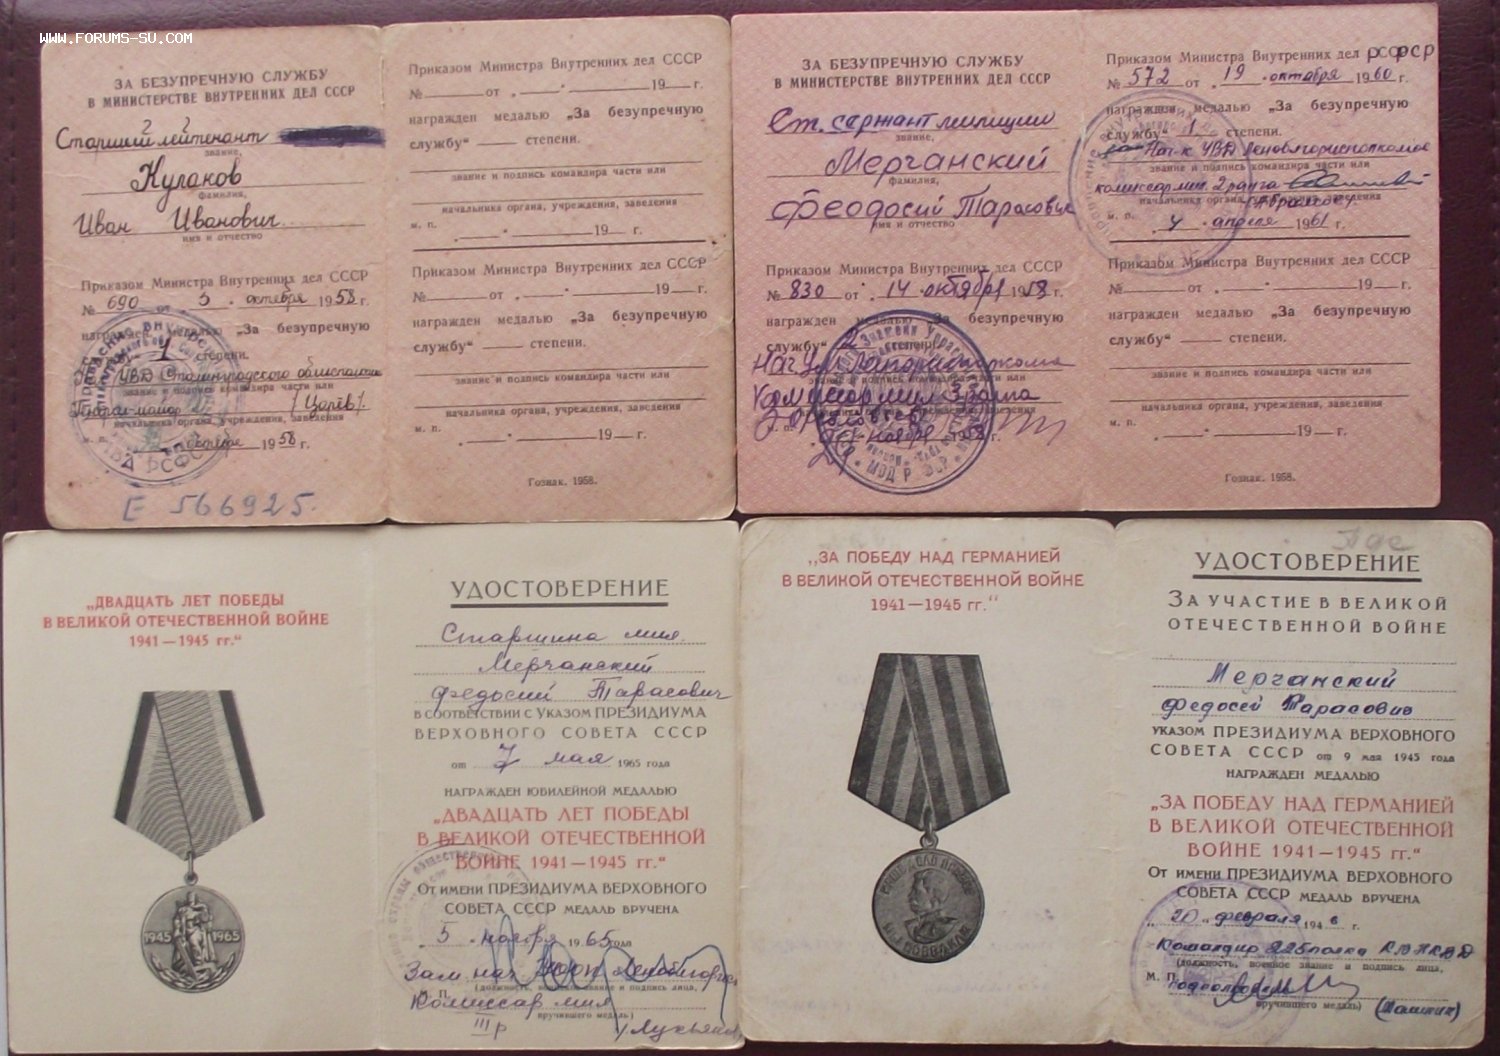 www.forums-su.com
ЗА БЕЗУПРЕЧНУЮ СЛУЖБУ
В МИНИСТЕРСТВЕ ВНУТРЕННИХ ДЕЛ СССР
Старший лейтенант
звание,
Кулаков
фамилия,
Иван Иванович
имя и отчество
Приказом Министра Внутренних дел СССР
№ 690 от 5 октября 1958 г.
награжден медалью „За безупречную
службу“ 1 степени.
УВД Сталинградского облисполкома
звание и подпись командира части или
майор /Царёв/.
начальника органа, учреждения, заведения
м. п. октября 1958 г.
Е 566925.
Приказом Министра Внутренних дел СССР
№ от „ · 19 г.
награжден медалью „За безупречную
службу“ степени.
звание и подпись командира части или
начальника органа, учреждения, заведения
м. п. „ · 19 г.
Приказом Министра Внутренних дел СССР
№ от „ · 19 г.
награжден медалью „За безупречную
службу“ степени.
звание и подпись командира части или
начальника органа, учреждения, заведения
м. п. „ · 19 г.
Гознак. 1958.
ЗА БЕЗУПРЕЧНУЮ СЛУЖБУ
В МИНИСТЕРСТВЕ ВНУТРЕННИХ ДЕЛ СССР
Ст. сержант милиции
звание,
Мерчанский
фамилия,
Феодосий Тарасович
имя и отчество
Приказом Министра Внутренних дел СССР
№ 830 от „ 14 · октября 1958 г.
награжден медалью „За безупречную
службу“ 2 степени.
звание и подпись командира части или
Комиссар мил 3 ранга
ноября 1958 г.
Приказом Министра Внутренних дел РСФСР
№ 572 от „ 19 · октября 1960 г.
награжден медалью „За безупречную
службу“ 1 степени.
Нач-к УВД Леноблгорисполкомов
звание и подпись командира части или
комиссар мил. 2 ранга
начальника органа, учреждения, заведения
м. п. „ 4 · апреля 1961 г.
Приказом Министра Внутренних дел СССР
№ от „ · 19 г.
награжден медалью „За безупречную
службу“ степени.
звание и подпись командира части или
начальника органа, учреждения, заведения
м. п. „ · 19 г.
Гознак. 1958.
„ДВАДЦАТЬ ЛЕТ ПОБЕДЫ
В ВЕЛИКОЙ ОТЕЧЕСТВЕННОЙ ВОЙНЕ
1941—1945 гг.“
1945 1965
УДОСТОВЕРЕНИЕ
Старшина мил.
Мерчанский
Федосий Тарасович
В СООТВЕТСТВИИ С УКАЗОМ ПРЕЗИДИУМА
ВЕРХОВНОГО СОВЕТА СССР
от 7 мая 1965 года
НАГРАЖДЕН ЮБИЛЕЙНОЙ МЕДАЛЬЮ
„ДВАДЦАТЬ ЛЕТ ПОБЕДЫ
В ВЕЛИКОЙ ОТЕЧЕСТВЕННОЙ
ВОЙНЕ 1941—1945 гг.“
От имени ПРЕЗИДИУМА ВЕРХОВНОГО
СОВЕТА СССР МЕДАЛЬ ВРУЧЕНА
„5“ ноября 1965 года
Зам. нач УООП Леноблгорис
(должность, военное звание и подпись лица,
М. П.
Комиссар мил
вручившего медаль)
III р
„ЗА ПОБЕДУ НАД ГЕРМАНИЕЙ
В ВЕЛИКОЙ ОТЕЧЕСТВЕННОЙ ВОЙНЕ
1941—1945 гг.“
НАШЕ ДЕЛО ПРАВОЕ
МЫ ПОБЕДИЛИ
УДОСТОВЕРЕНИЕ
ЗА УЧАСТИЕ В ВЕЛИКОЙ
ОТЕЧЕСТВЕННОЙ ВОЙНЕ
Мерчанский
Федосей Тарасович
УКАЗОМ ПРЕЗИДИУМА ВЕРХОВНОГО
СОВЕТА СССР от 9 мая 1945 года
НАГРАЖДЕН МЕДАЛЬЮ
„ЗА ПОБЕДУ НАД ГЕРМАНИЕЙ
В ВЕЛИКОЙ ОТЕЧЕСТВЕННОЙ
ВОЙНЕ 1941—1945 гг.“
От имени ПРЕЗИДИУМА ВЕРХОВНОГО
СОВЕТА СССР МЕДАЛЬ ВРУЧЕНА
„20“ февраля 1946 г.
Командир 225 полка КВ НКВД
(должность, военное звание и подпись лица,
М. П.
подполковник
вручившего медаль)